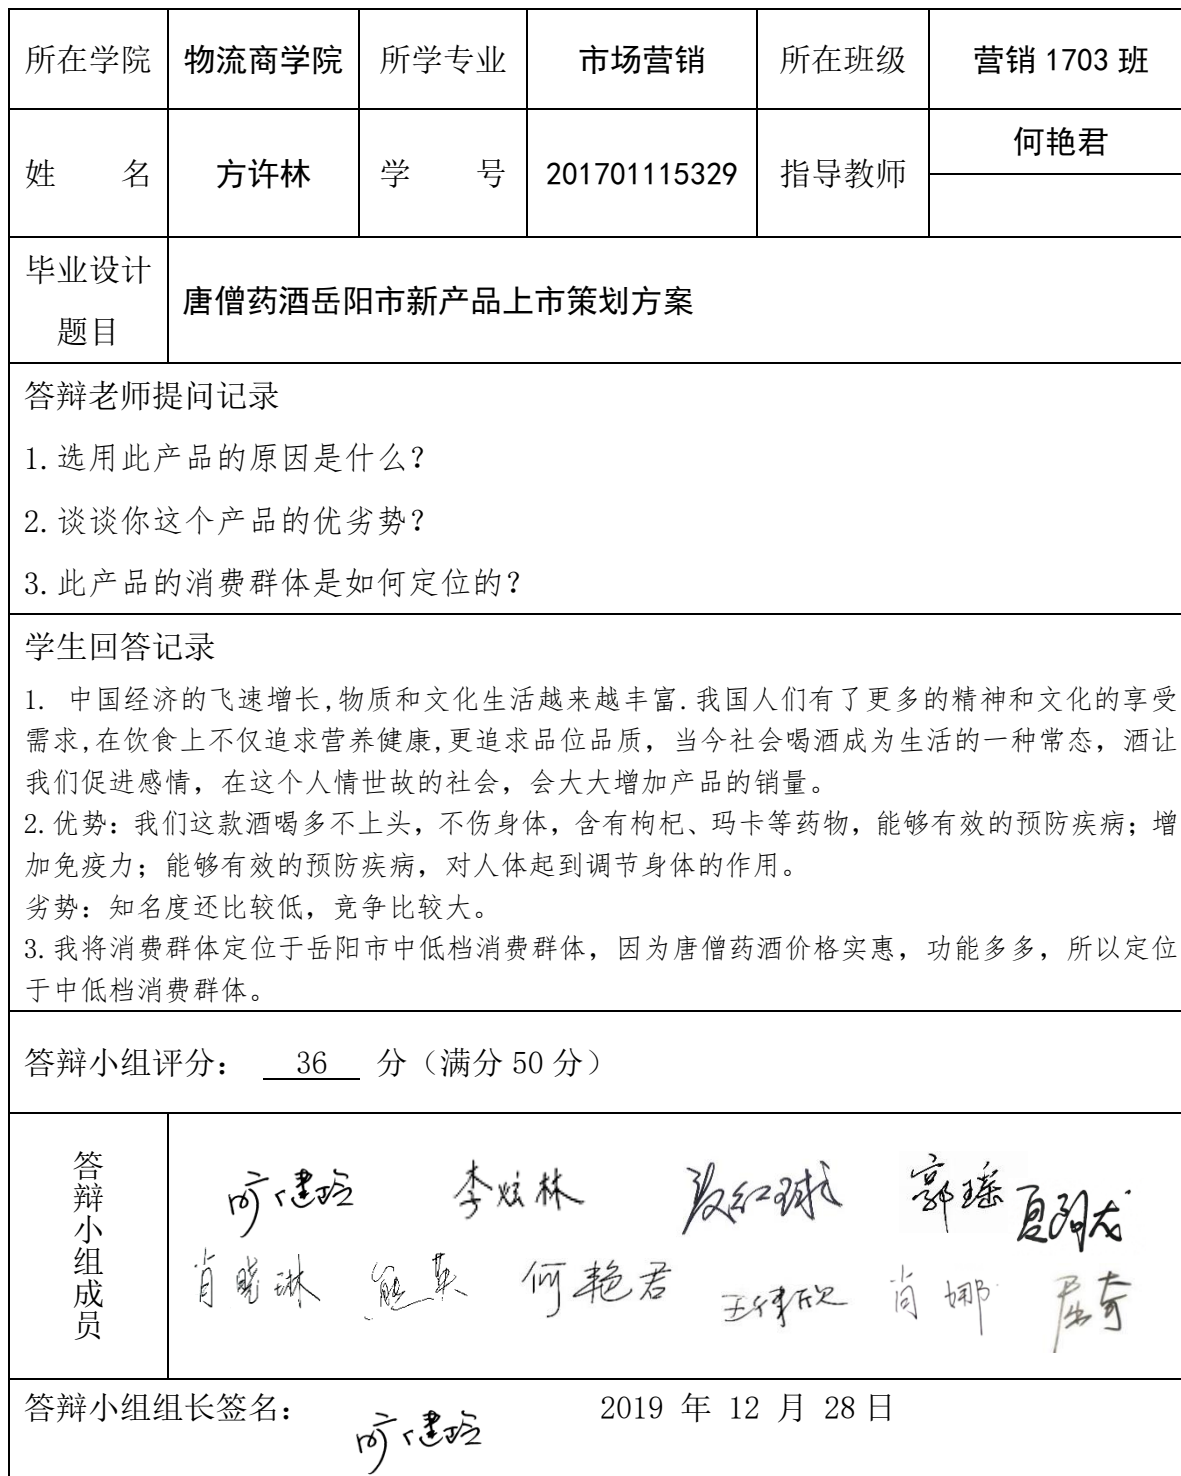 所在学院 物流商学院 所学专业 市场营销 所在班级 营销 1703 班
姓 名 方许林 学 号 201701115329 指导教师 何艳君
毕业设计题目 唐僧药酒岳阳市新产品上市策划方案
答辩老师提问记录
1.选用此产品的原因是什么？
2.谈谈你这个产品的优劣势？
3.此产品的消费群体是如何定位的？
学生回答记录
1. 中国经济的飞速增长,物质和文化生活越来越丰富.我国人们有了更多的精神和文化的享受
需求,在饮食上不仅追求营养健康,更追求品位品质，当今社会喝酒成为生活的一种常态，酒让
我们促进感情，在这个人情世故的社会，会大大增加产品的销量。
2.优势：我们这款酒喝多不上头，不伤身体，含有枸杞、玛卡等药物，能够有效的预防疾病；增
加免疫力；能够有效的预防疾病，对人体起到调节身体的作用。
劣势：知名度还比较低，竞争比较大。
3.我将消费群体定位于岳阳市中低档消费群体，因为唐僧药酒价格实惠，功能多多，所以定位
于中低档消费群体。
答辩小组评分： 36 分（满分 50 分）
答辩小组成员
李炫林 郭瑶
肖晓琳 熊英 何艳君 肖娜 屈奇
答辩小组组长签名： 2019 年 12 月 28 日